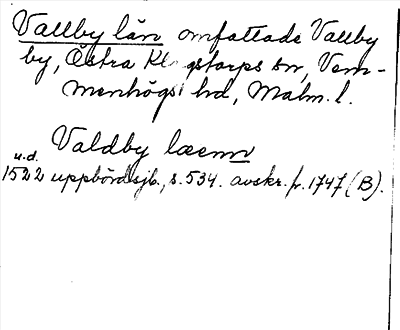 Vallby län omfattade Vallby
by, Östra Kl gstorps sn, Vem-
menhögs hd, Malm. l.
Valdby læenn
u.d.
1522 uppbördsjb., s. 534. avskr. fr. 1747 (B).